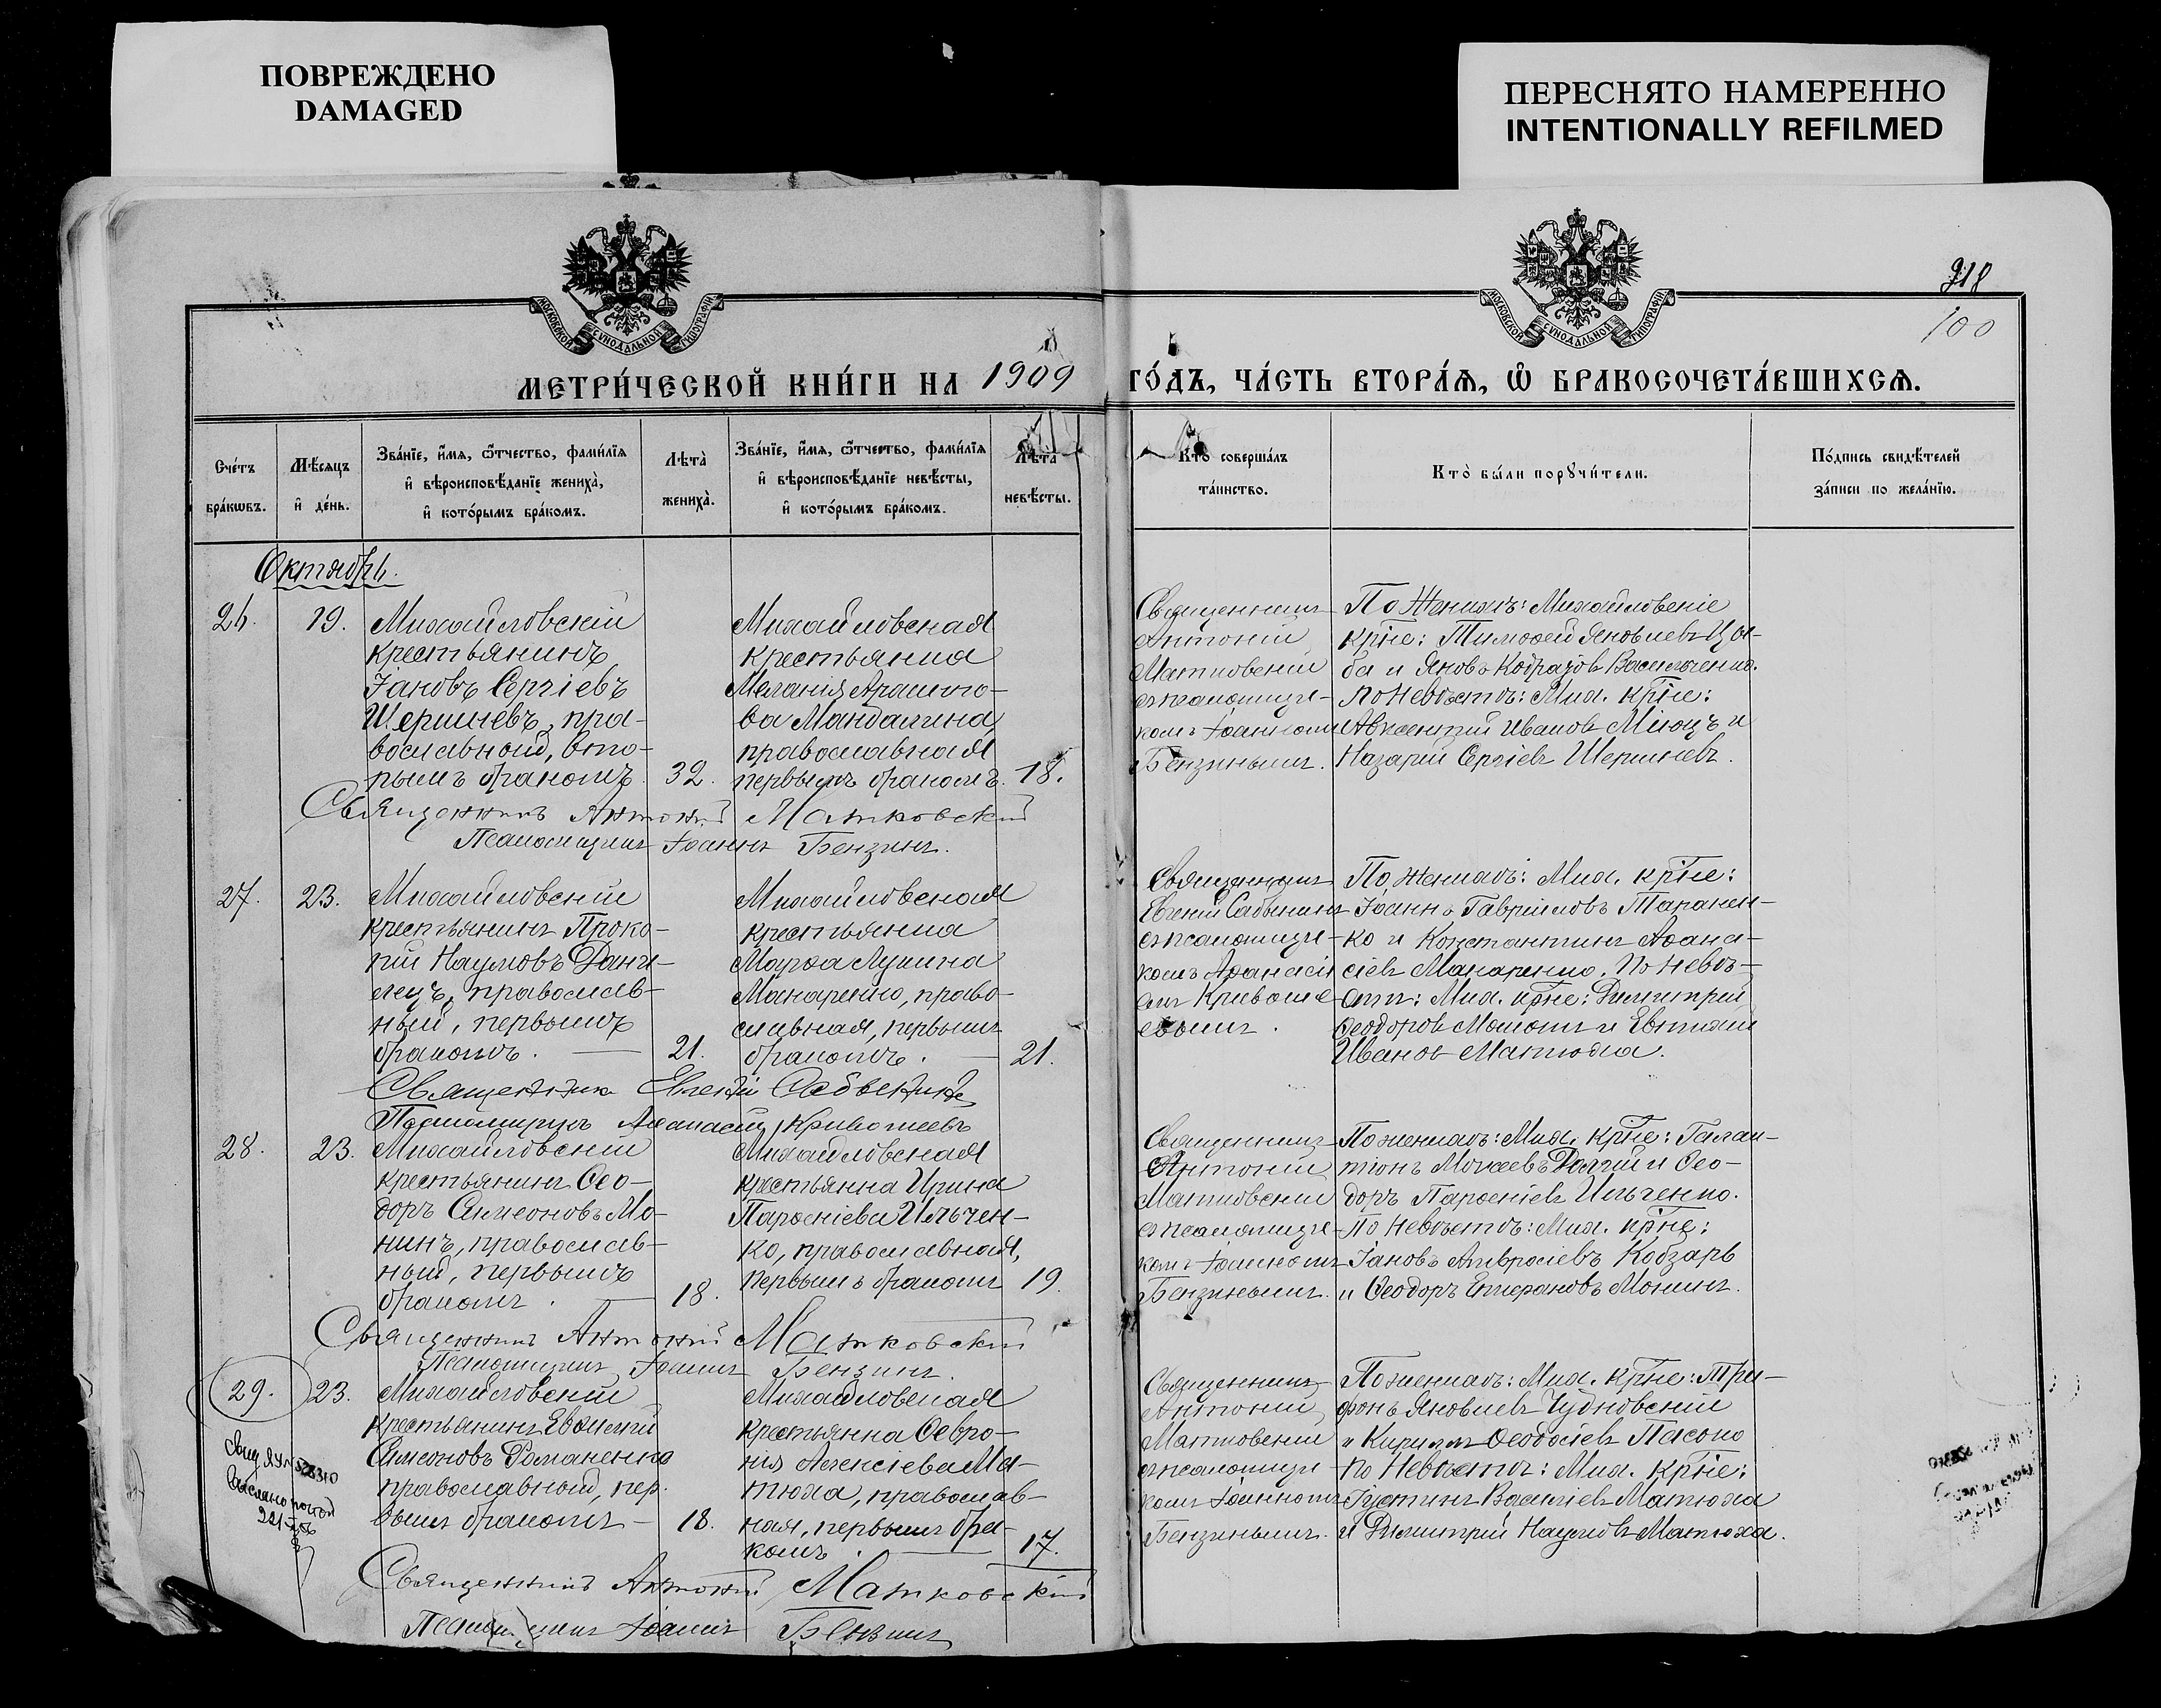 ПОВРЕЖДЕНО
DAMAGED
ПЕРЕСНЯТО НАМЕРЕННО
INTENTIONALLY REFILMED
МОСКОВСКОЙ СѴНОДАЛЬНОЙ ТИПОГРАФІИ
МОСКОВСКОЙ СѴНОДАЛЬНОЙ ТИПОГРАФІИ
918
100
МЕТРИ́ЧЕСКОЙ КНИ́ГИ НА 1909 ГО́ДЪ, ЧА́СТЬ ВТОРА́Ѧ, Ѽ БРАКОСОЧЕТА́ВШИХСѦ.
Счéтъ
брáкѡвъ.
Мѣ́сѧцъ
и҆ дéнь.
Звáнїе, и҆́мѧ, ѻ҆́тчество, фами́лїѧ
и҆ вѣроисповѣ́данїе женихà,
и҆ кото́рымъ брáкомъ.
Лѣ́тà
женихà.
Звáнїе, и҆́мѧ, ѻ҆́тчество, фами́лїѧ
и҆ вѣроисповѣ́данїе невѣ́сты,
и҆ кото́рымъ брáкомъ.
Лѣ́тà
невѣ́сты.
Ктò совершáлъ
тáинство.
Ктò бы́ли порꙋчи́тели.
По́дпись свидѣ́телей
зáписи по желáнїю.
Октябрь.
26.
19.
Михайловскій
крестьянинъ
Іаковъ Сергіевъ
Шершневъ, пра-
вославный, вто-
рымъ бракомъ.
32.
Михайловская
крестьянка
Меланія
ва Мандалина,
православная
первымъ бракомъ.
18.
Священникъ
Антоній
Матковскій
съ псаломщи-
комъ Іоанномъ
Бензинымъ.
По Женихѣ: Михайловскіе
кр҃не: Тимоѳей Яковлевъ Цы-
ба и Яковъ Василенко.
по Невѣстѣ: Мих. кр҃не:
Авксентій Ивановъ Міюцъ и
Назарій Сергіевъ Шершневъ.
Священникъ Антоній Матковскій
Псаломщикъ Іоаннъ Бензинъ.
27.
23.
Михайловскій
крестьянинъ Проко-
пій Наумовъ Дани-
лецъ, православ-
ный, первымъ
бракомъ. —
21.
Михайловская
крестьянка
Марѳа Лукина
Макаренко, право-
славная, первымъ
бракомъ. —
21.
Священникъ
Евгеній
съ псаломщи-
комъ Аѳанасі
емъ Кривоше
евымъ.
По Женихѣ: Мих. кр҃не:
Іоаннъ Гавріиловъ Таранен-
ко и Константинъ Аѳана-
сіевъ Макаренко. По невѣ-
стѣ: Мих. кр҃не: Димитрій
Ѳеодоровъ и Евѳимій
Ивановъ Матюха.
Священникъ Евгеній
Псаломщикъ Аѳанасій Кривошеевъ
28.
23.
Михайловскій
крестьянинъ Ѳео-
доръ Симеоновъ Мо-
нинъ, православ-
ный, первымъ
бракомъ. —
18.
Михайловская
крестьянка Ирина
Парѳеніева Ильчен-
ко, православная,
первымъ бракомъ
19.
Священникъ
Антоній
Матковскій
съ псаломщи-
комъ Іоанномъ
Бензинымъ.
По женихѣ: Мих. кр҃не: Галак-
тіонъ Мокіевъ Долгій и Ѳео-
доръ Парѳеніевъ Ильченко.
По Невѣстѣ: Мих. кр҃не:
Іаковъ Амвросіевъ Кобзарь
и Ѳеодоръ Монинъ.
Священникъ Антоній Матковскій
Псаломщикъ Іоаннъ Бензинъ.
29.
23.
Михайловскій
крестьянинъ Евѳимій
Симеоновъ Романенко
православный, пер-
вымъ бракомъ —
18.
Михайловская
крестьянка Ѳевро-
нія Алексіева Ма-
тюха, православ-
ная, первымъ бра-
комъ. —
17.
Священникъ
Антоній
Матковскій
съ псаломщи-
комъ Іоанномъ
Бензинымъ.
По женихѣ: Мих. кр҃не: Три-
фонъ Яковлевъ Чудновскій
и Кириллъ Ѳеодосіевъ
По Невѣстѣ: Мих. кр҃не:
Іустинъ Василіевъ Матюха
и Димитрій Наумовъ Матюха.
Священникъ Антоній Матковскій
Псаломщикъ Іоаннъ Бензинъ